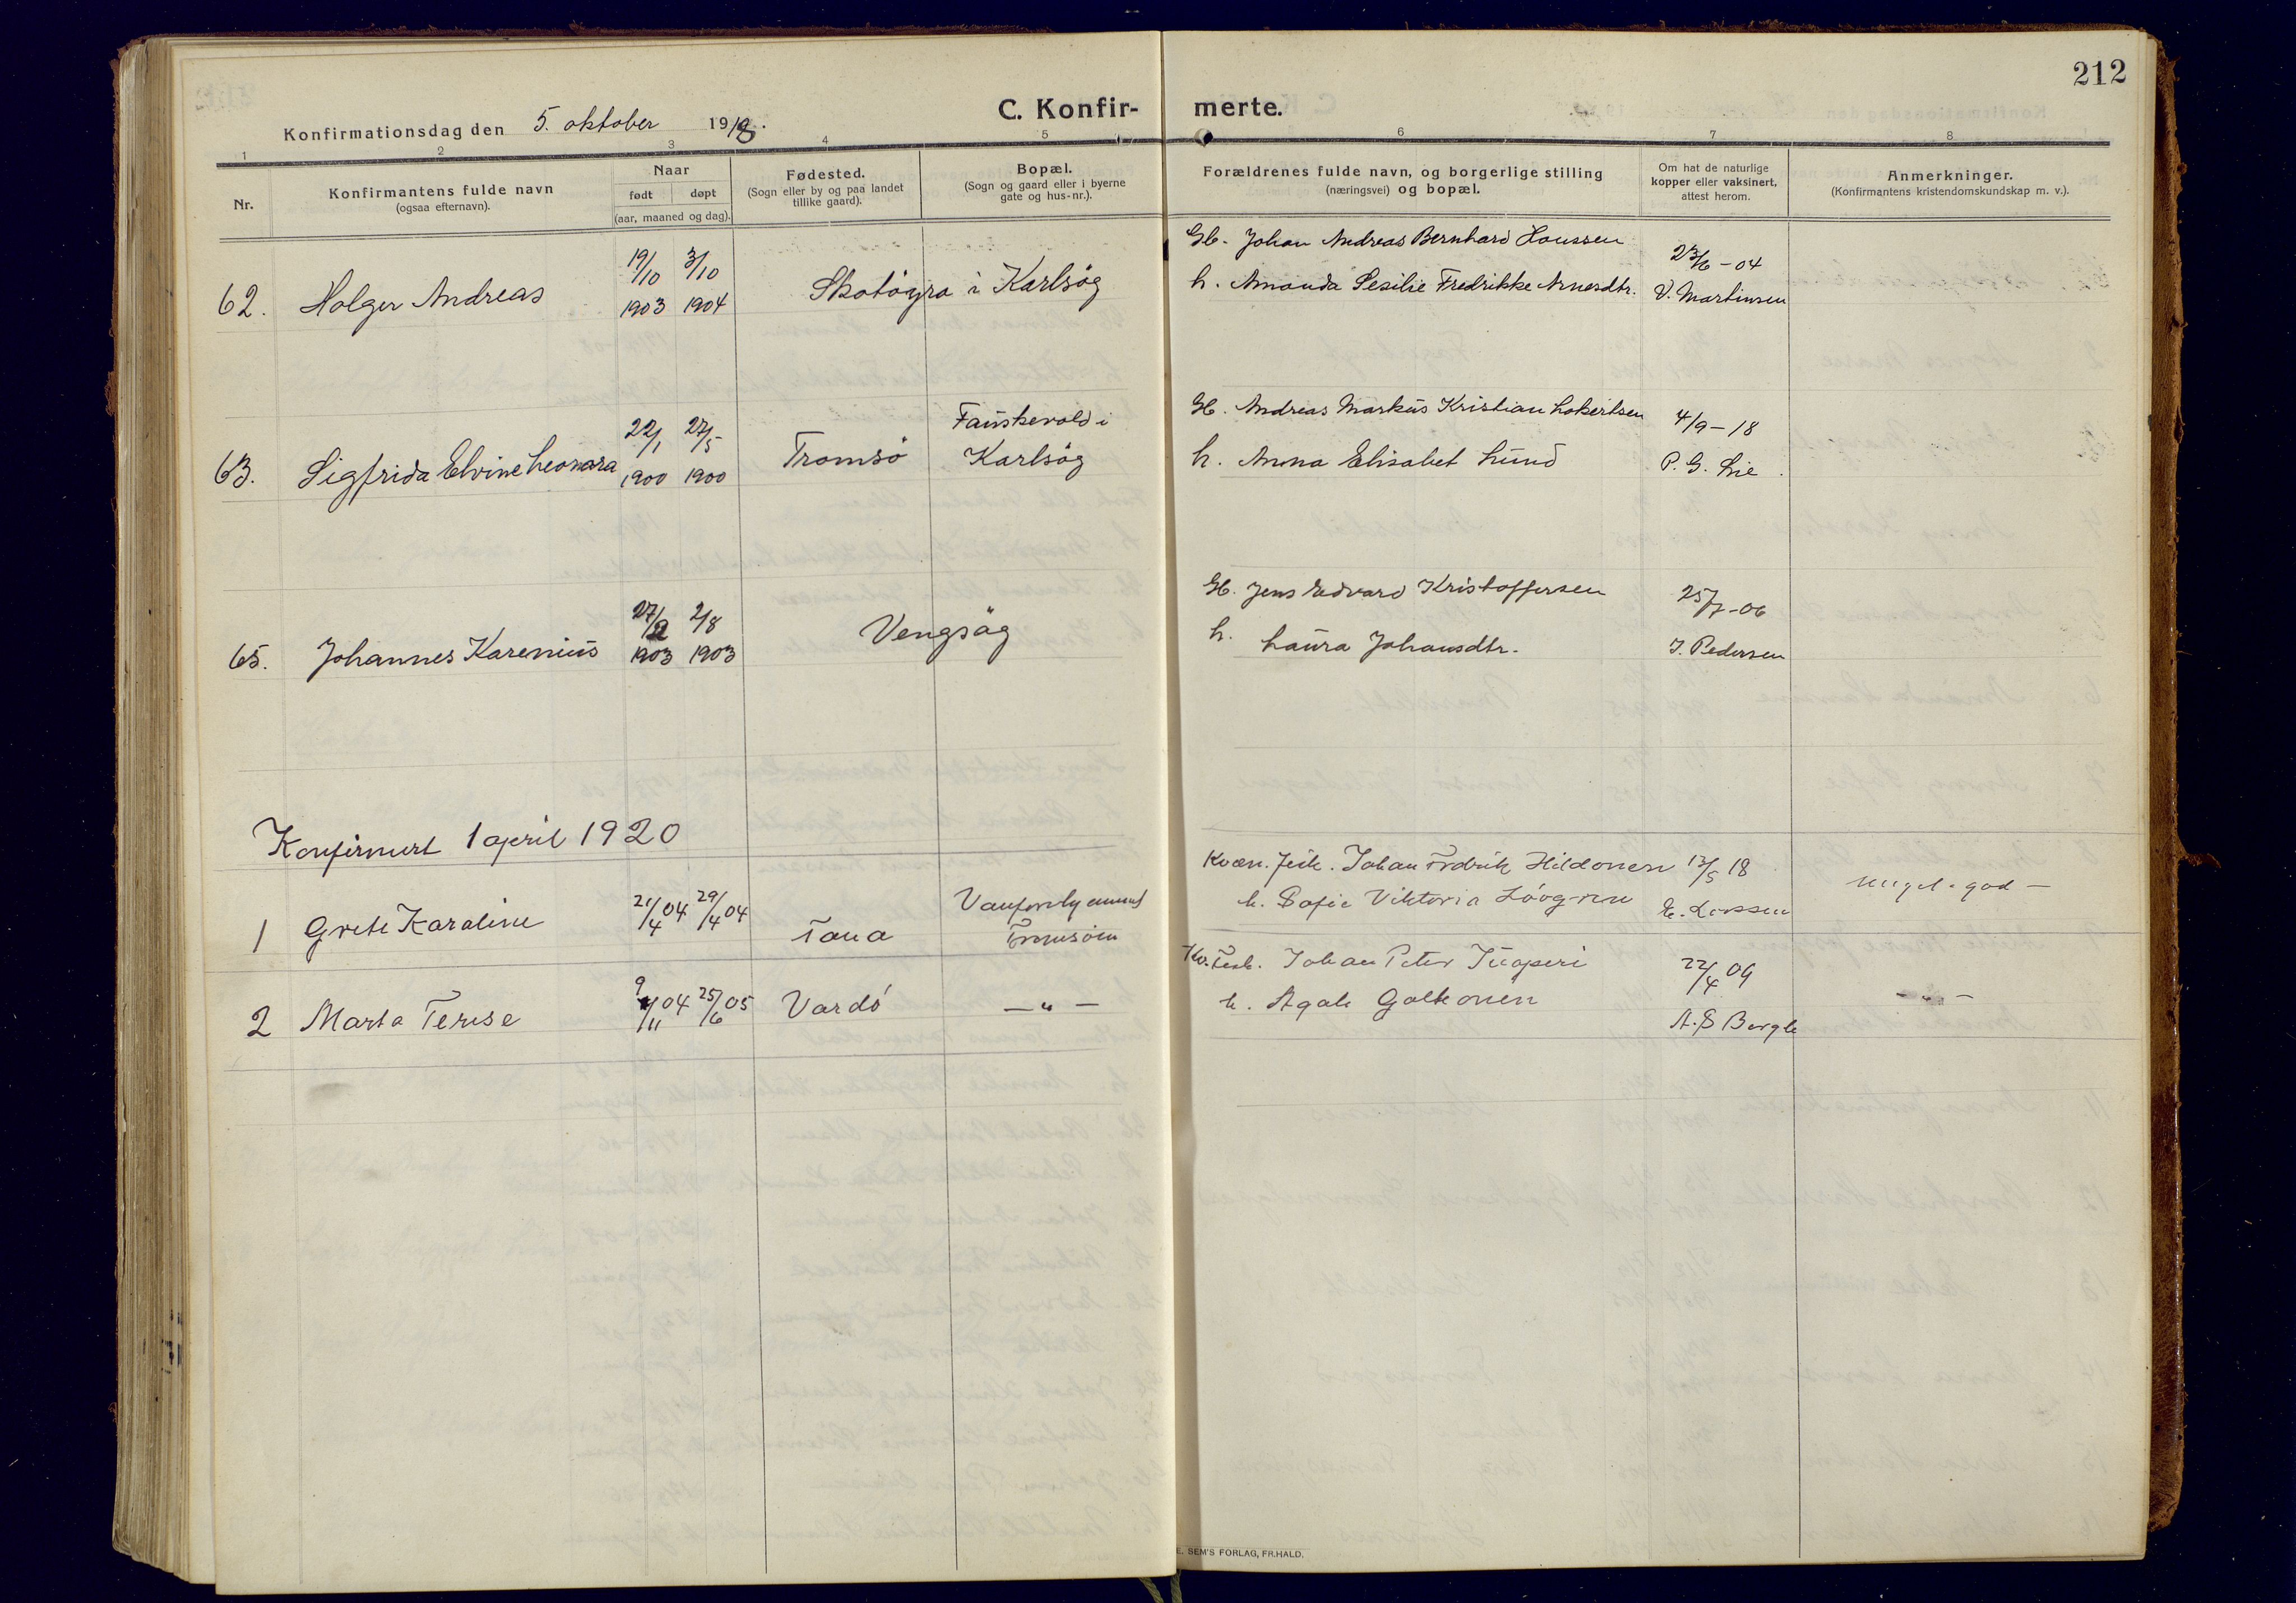 212
C. Konfirmerte.
Konfirmationsdag den 5. oktober 1919.
1 2 3 4 5 6 7 8
Nr.
Konfirmantens fulde navn
(ogsaa efternavn).
Naar
født døpt
(aar, maaned og dag).
Fødested.
(Sogn eller by og paa landet
tillike gaard).
Bopæl.
(Sogn og gaard eller i byerne
gate og hus-nr.).
Forældrenes fulde navn, og borgerlige stilling
(næringsvei) og bopæl.
Om hat de naturlige
kopper eller vaksinert,
attest herom.
Anmerkninger.
(Konfirmantens kristendomskundskap m. v.).
62. Holger Andreas 19/10 1903 3/10 1904 Skotøgra i Karlsøg
Gb. Johan Andreas Bernhard Hanssen 23/6-04
h. Amanda Sesilie Fredrikke Arnesdtr. V. Martinsen
63. Sigfrida Elvine Leonara 22/1 1900 27/5 1900 Tromsø Fauskevold i Karlsøg
Gb. Andreas Markus Kristian Lokertsen 4/9-18
h. Anna Elisabet Lund P. G. Lie
65. Johannes Karenius 27/2 1903 2/8 1903 Vengsøg
Gb. Jens Edvard Kristoffersen 25/7-06
h. Laura Johansdtr. J. Pedersen
Konfirmert 1 april 1920
1 Grete Karaline 21/4 04 29/4 04 Tana Tromsøen
Kvæn. fisk. Johan Fredrik Hildonen 13/5 18 meget god —
h. Sofie Viktoria Lövgren E. Larssen
2 Marta Terese 9/11 04 25/6 05 Vardö — " —
Kv. Fisk. Johan Peter Juoperi 22/4 09 - " -
h. Agate Galkonen A. S Bergh
E. SEM'S FORLAG, FR.HALD.